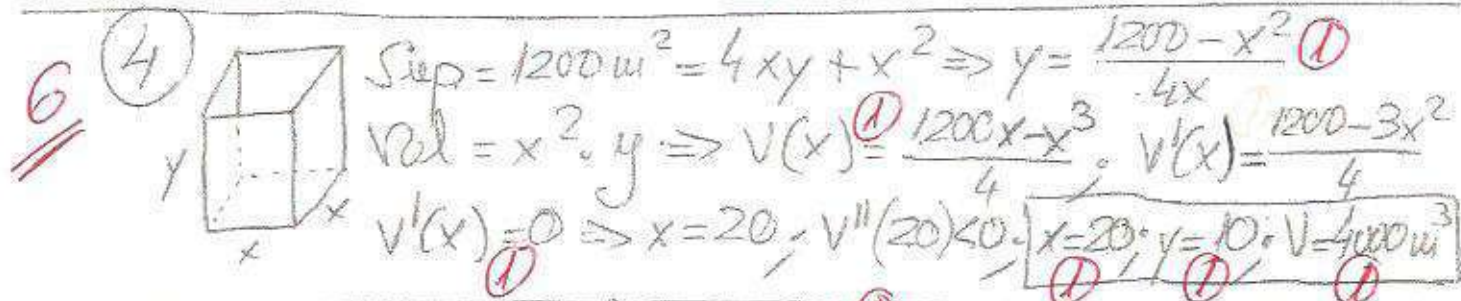 6 4 Sup = 1200 m² = 4xy + x² ⇒ y = (1200 - x²)/4x 1
Vol = x² · y ⇒ V(x) = 1 (1200x - x³)/4 ; V'(x) = (1200 - 3x²)/4
y
x
x
V'(x) = 0 ⇒ x = 20 ; V''(20) < 0 ; x = 20 ; y = 10 ; V = 4000 m³
1 1 1 1